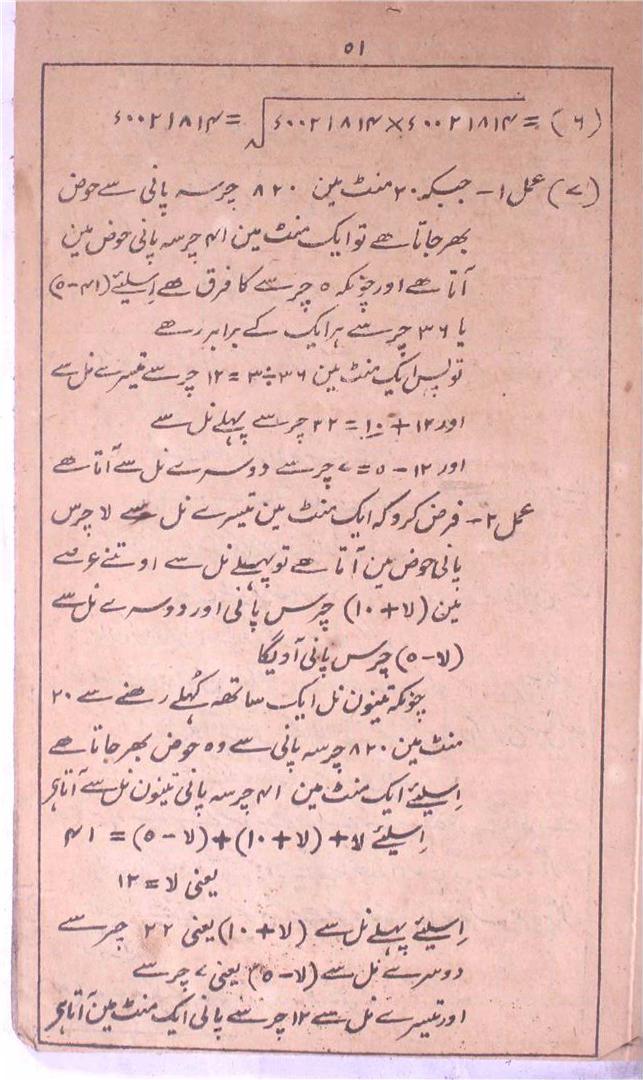 ۵۱
(۶) = √۶۰۰۲۱۸۱۴×۶۰۰۲۱۸۱۴ = ۶۰۰۲۱۸۱۴
(۷) عمل ۱- جبکہ ۲۰ منٹ مین ۸۲۰ چرسہ پانی سے حوض
بھر جاتا ہے تو ایک منٹ مین ۴۱ چرسہ پانی حوض مین
آتا ہے اور چونکہ ۵ چرسے کا فرق ہے اِسلیئے (۴۱-۵)
یا ۳۶ چرسے ہر ایک کے برابر رہے
تو پس ایک منٹ مین ۳۶÷۳ = ۱۲ چرسے تیسرے نل سے
اور ۱۲+۱۰ = ۲۲ چرسے پہلے نل سے
اور ۱۲-۵ = ۷ چرسے دوسرے نل سے آتا ہے
عمل ۲- فرض کرو کہ ایک منٹ مین تیسرے نل سے لا چرس
پانی حوض مین آتا ہے تو پہلے نل سے اوتنے عرصے
مین (لا+۱۰) چرس پانی اور دوسرے نل سے
(لا-۵) چرس پانی آویگا
چونکہ تینون نل ایک ساتھہ کُہلے رہنے سے ۲۰
منٹ مین ۸۲۰ چرسہ پانی سے وہ حوض بھر جاتا ہے
اِسلیئے ایک منٹ مین ۴۱ چرسہ پانی تینون نل سے آتا ہے
اِسلیئے لا + (لا+۱۰)+(لا-۵) = ۴۱
یعنی لا = ۱۲
اِسلیئے پہلے نل سے (لا+۱۰) یعنی ۲۲ چرسے
دوسرے نل سے (لا-۵) یعنی ۷ چرسے
اور تیسرے نل سے ۱۲ چرسے پانی ایک منٹ مین آتا ہے